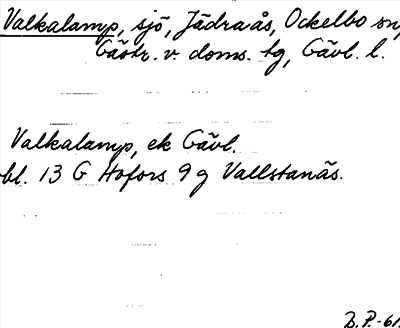 Valkalamp, sjö, Jädraås, Ockelbo sn,
Gästr. v. doms. tg, Gävl. l.
Valkalamp, ek Gävl.
bl. 13 G Hofors 9 g Vallstanäs.
B.P.-61.